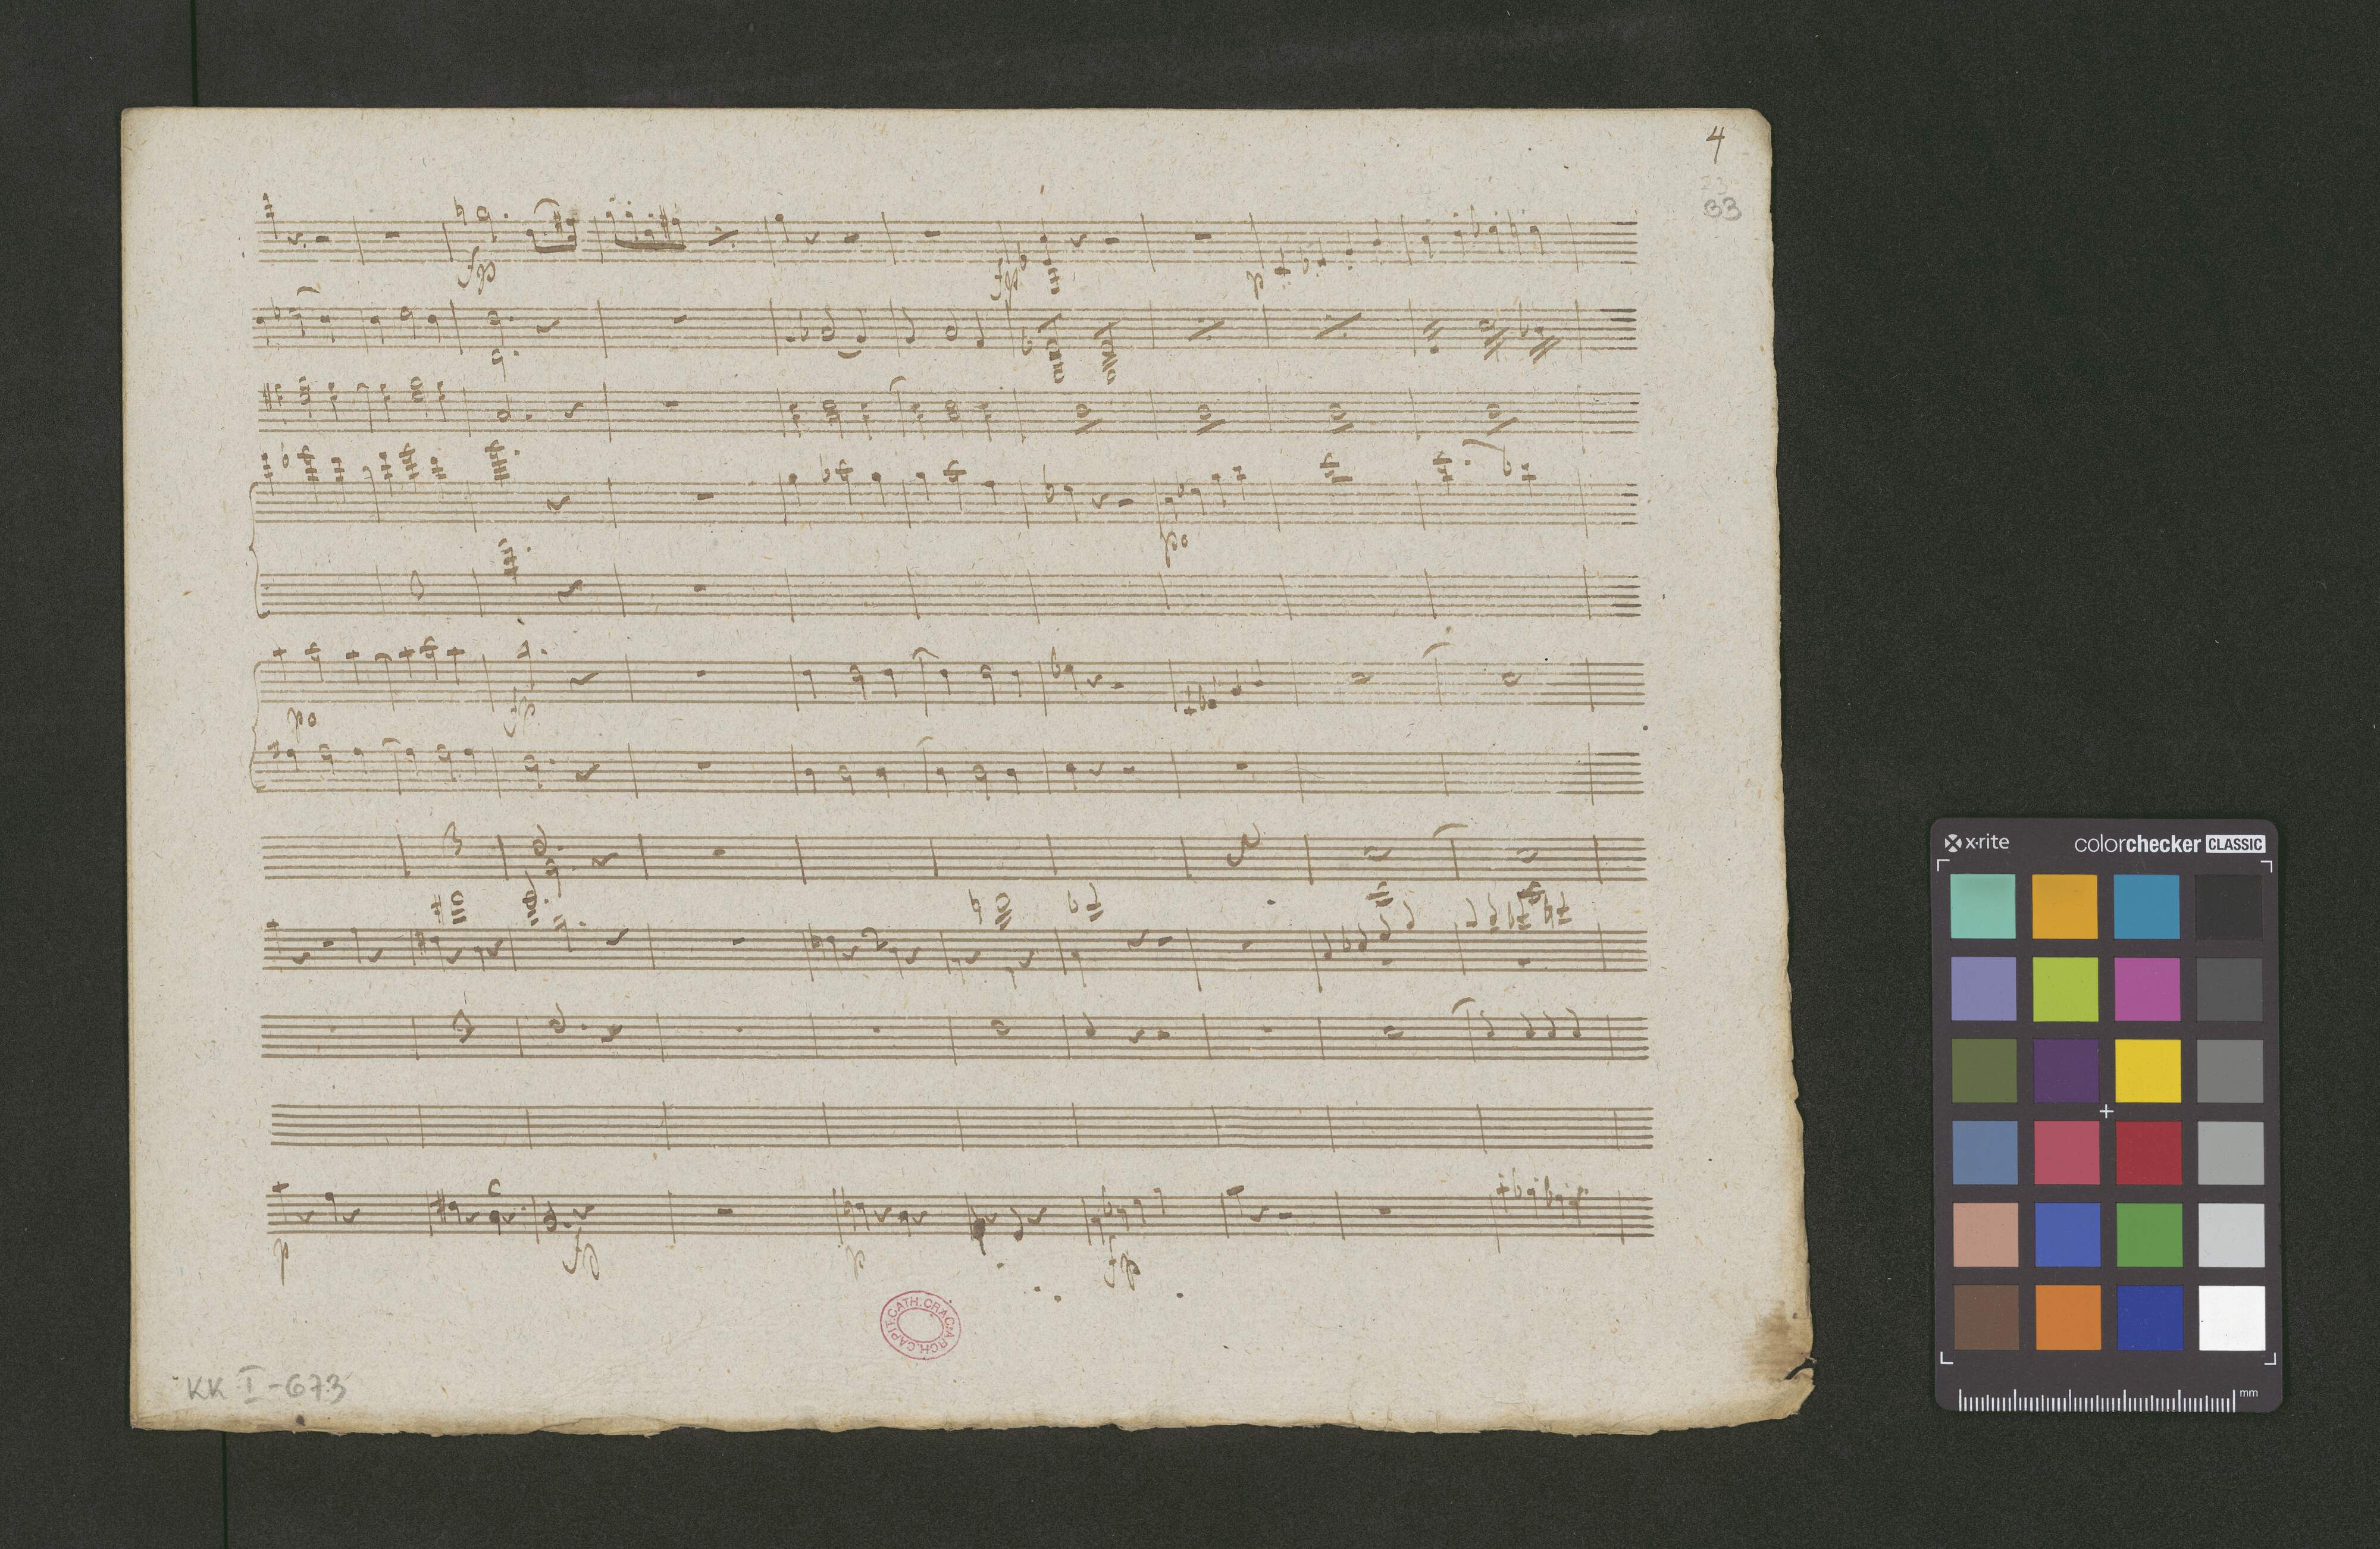 4
33
fp
fp
p
po
po
fp
p
fp
p
fp
CAPIT.CATH.CRAC.ARCH.
KK I-673
x·rite
colorchecker CLASSIC
mm